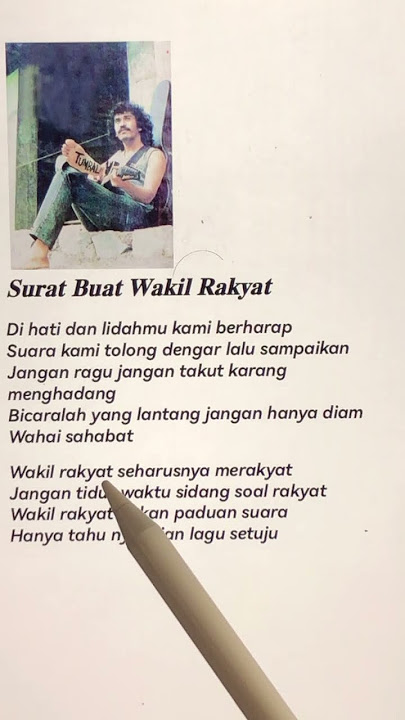 TUMBAL
Surat Buat Wakil Rakyat
Di hati dan lidahmu kami berharap
Suara kami tolong dengar lalu sampaikan
Jangan ragu jangan takut karang
menghadang
Bicaralah yang lantang jangan hanya diam
Wahai sahabat
Wakil rakyat seharusnya merakyat
Jangan waktu sidang soal rakyat
Wakil rakyat paduan suara
Hanya tahu lagu setuju